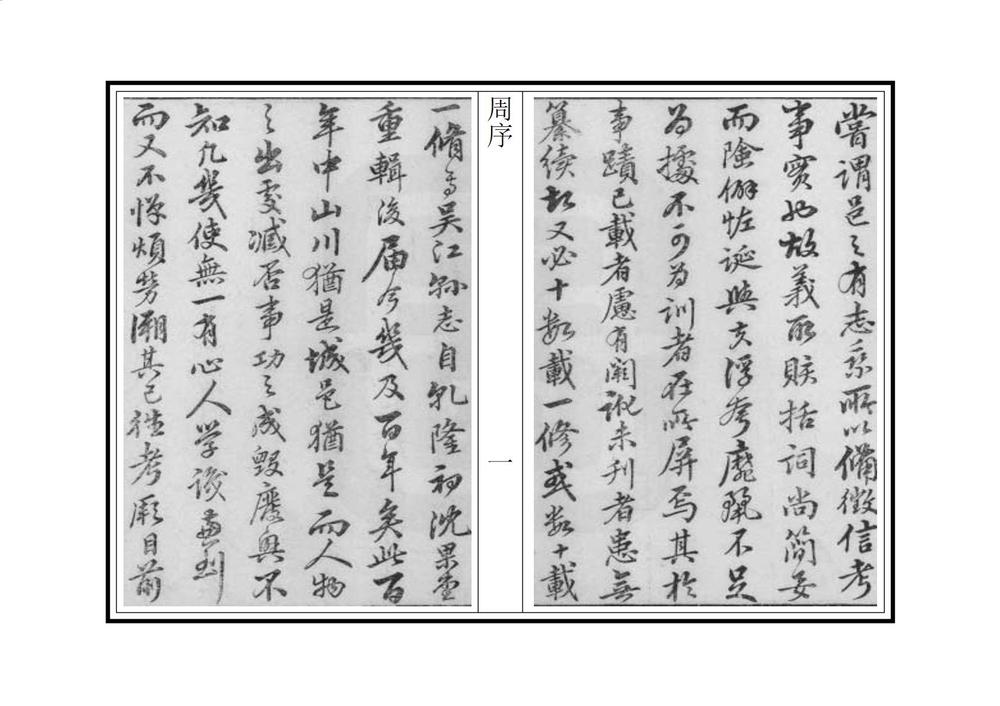 嘗謂邑之有志乘所以備徵信考
事實也故義取賅括詞尚簡要
而險僻怪誕與夫浮夸靡麗不足
為據不可為訓者在所屏焉其於
事蹟已載者慮有闕訛未刊者患無
纂續故又必十數載一修或數十載
周序
一
一脩焉吳江縣志自乹隆初沈果堂
重輯後届今幾及百年矣此百
年中山川猶是城邑猶是而人物
之出處臧否事功之成毀廢興不
知凡幾使無一有心人學識兼到
而又不憚煩勞溯其已往考厥目前